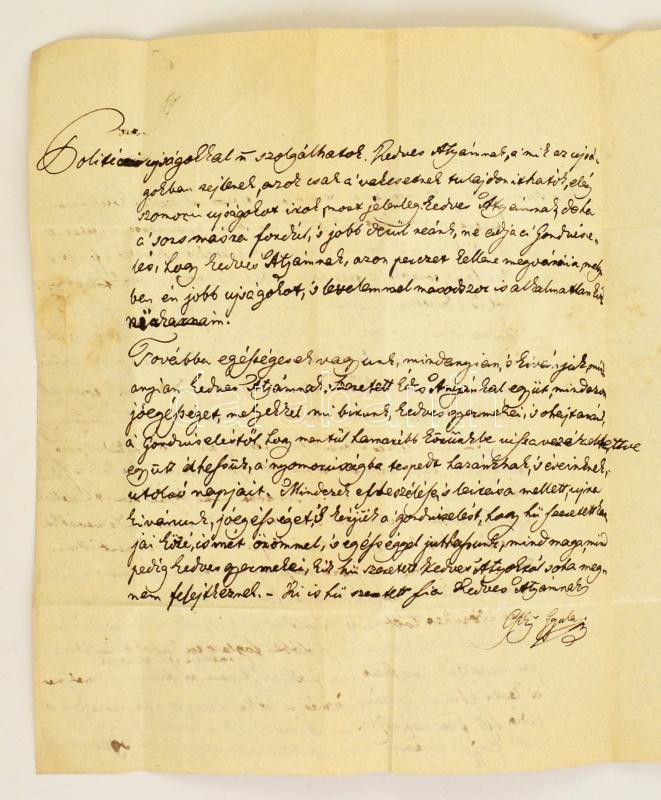 ujságokkal n̄ szolgálhatok. Kedves Atyámnak, a' mik az ujsá-
gokban sejlenek, azok csak a' vakesetnek tulajdonithatók, elég
szomorú ujságokat irok most jelenleg kedves Atyámnak, de ha
a' sors másra fordúl, 's jobb derül reánk, ne adja a' Gondvise-
lés, hogy kedves Atyámnak, azon perczet kellene megvárnia, mely-
ben én jobb ujságokat, 's levelemmel másodszor is alkalmatlan
Továbbá egésségesek vagyunk, mindnyian, 's kivánjuk
kedves Atyámnak, Szeretett Édes Anyánkal együt, mindazon
jóegésséget, melyekkel mi birunk, kedves gyermekei, 's ohajtanánk
a' Gondviseléstől, hogy mentül hamarébb körünkbe visszavezéreltetve
együtt élhessük, a' nyomoruságba tespedt hazánknak, 's éveinknek
utolsó napjait. Mindezek elbeszélése 's leirása mellett, ujra
kivánunk, jóegésséget, 's kérjük a' gondviselést, hogy hű szeretett
jai közé, ismét örömmel, 's egésséggel juthassunk, mind maga, mind
pedig kedves gyermekei, kik hű szeretett kedves Atyoktól soha meg
nem felejtkeznek. – Ki is hű szeretett fia Kedves Atyámnak
Gyula